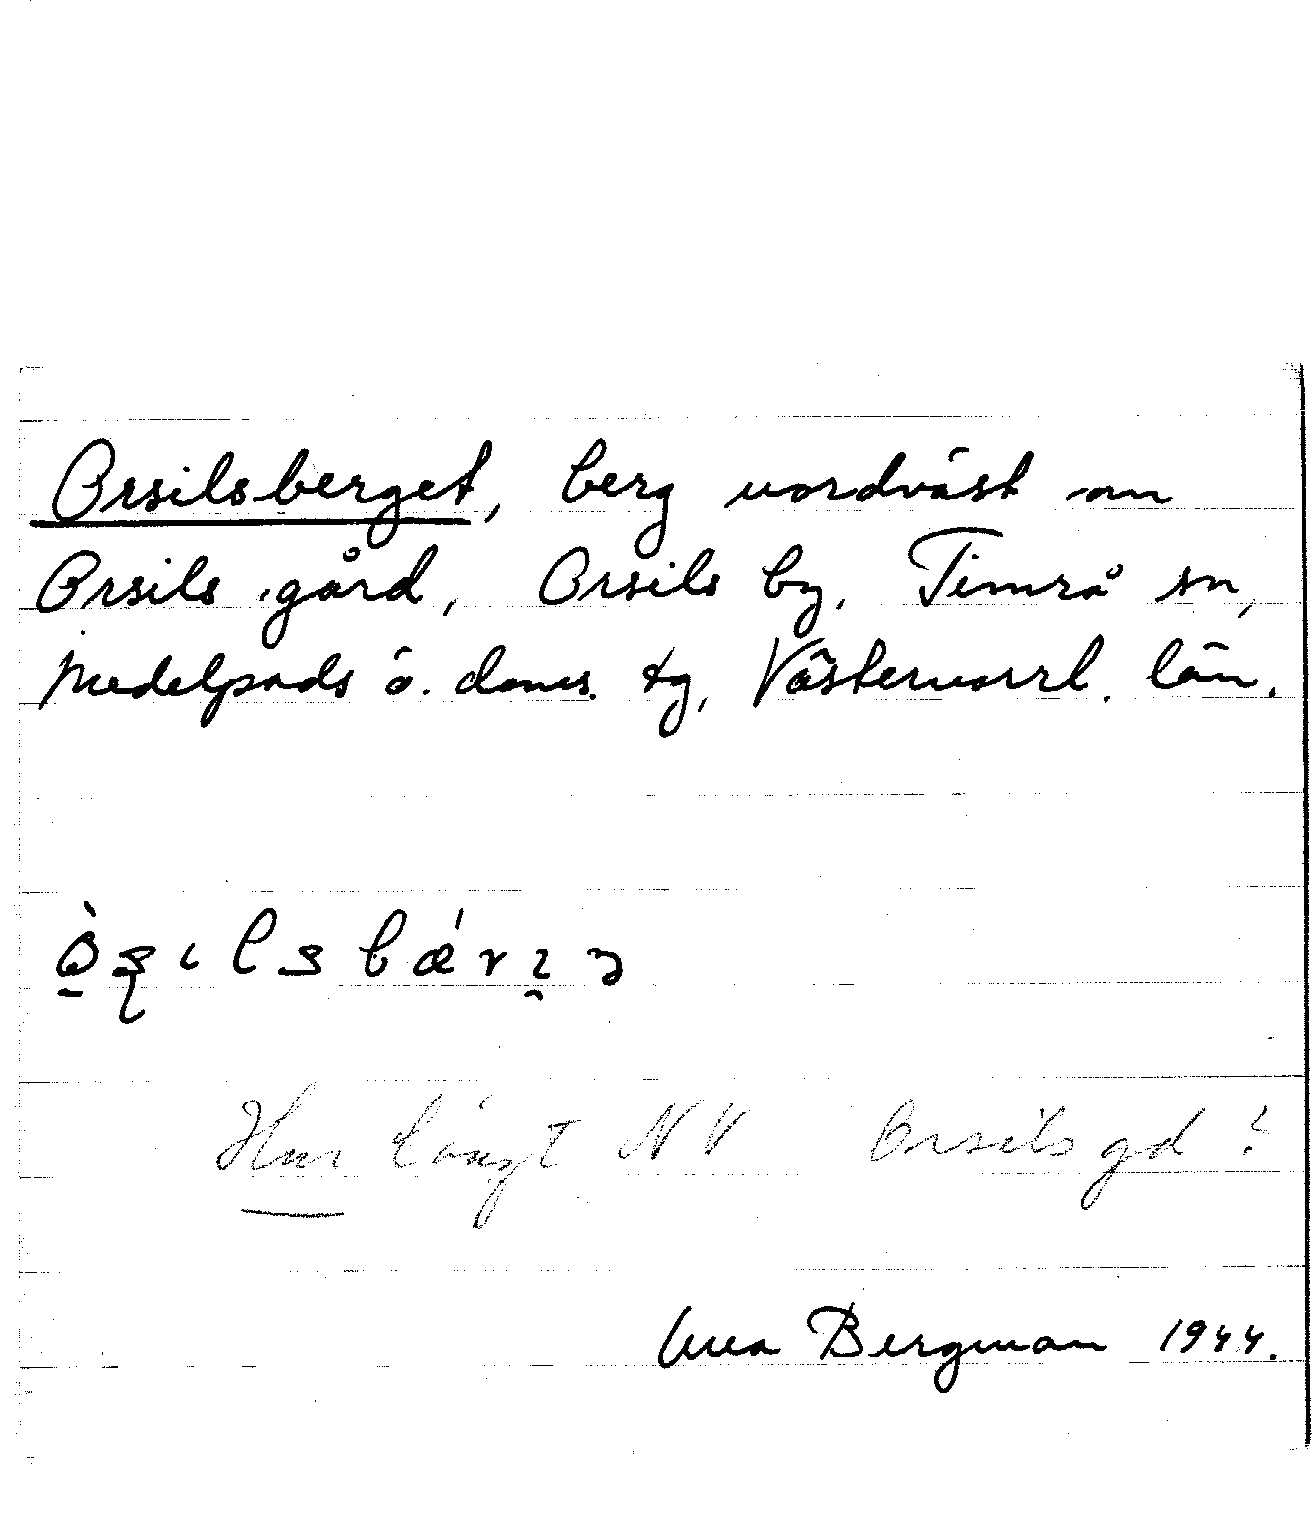 Orsilsberget, berg nordväst om
Orsils gård, Orsils by, Timrå sn,
Medelpads ö. doms. tg, Västernorrl. län.
Hur långt NV Orsils gd?
Bergman 1944.